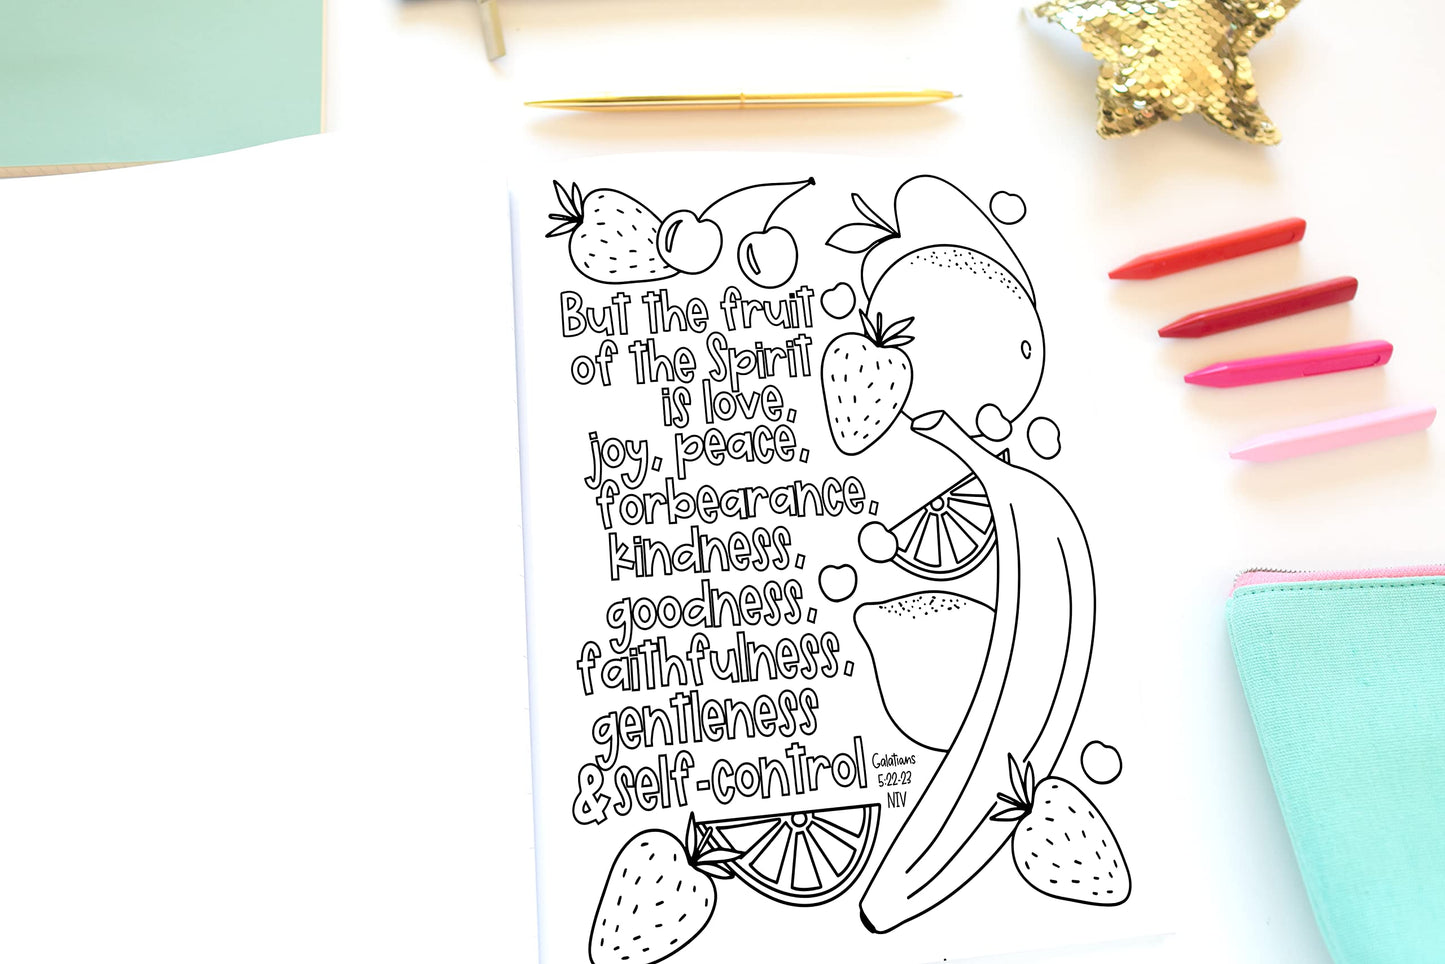 But the fruit
of the Spirit
is love,
joy, peace,
forbearance,
kindness,
goodness,
faithfulness,
gentleness
& self-control
Galatians
5:22-23
NIV